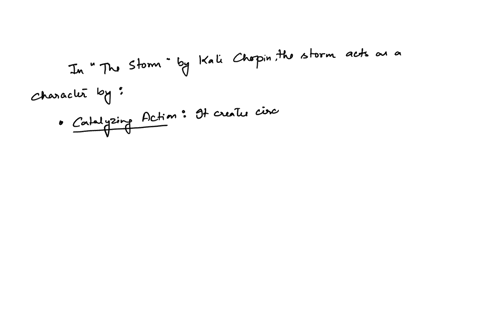 In "The Storm" by Kate Chopin, the storm acts as a
character by :
• Catalyzing Action : It creates circ